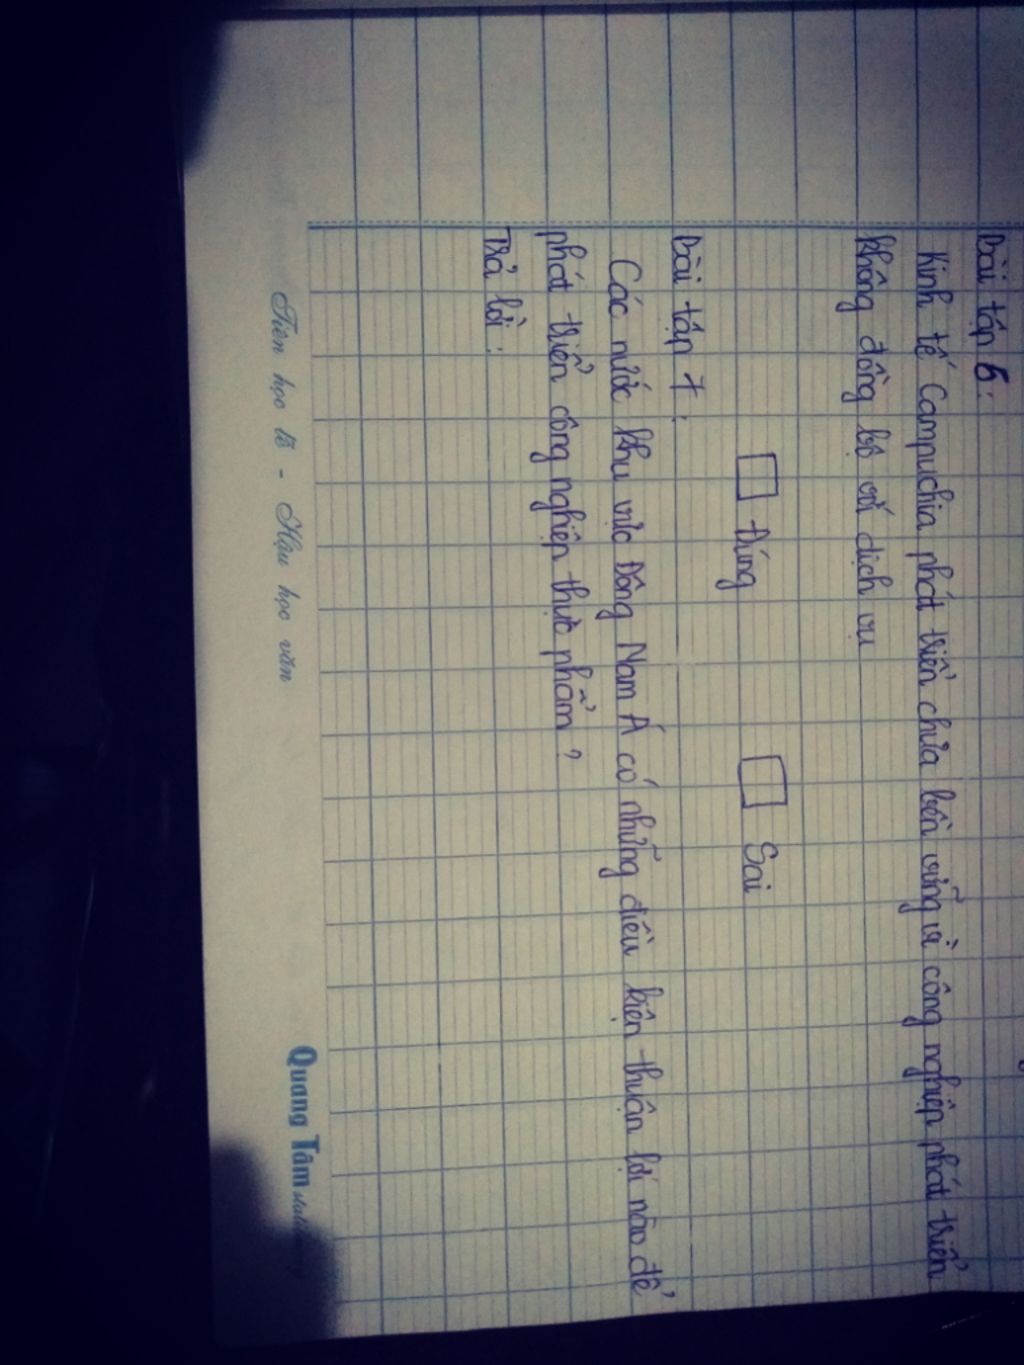 Bài tập 6:
Kinh tế Campuchia phát triển chưa bền vững vì công nghiệp phát triển
không đồng bộ với dịch vụ
Đúng Sai
Bài tập 7:
Các nước khu vực Đông Nam Á có những điều kiện thuận lợi nào để
phát triển công nghiệp thực phẩm?
Trả lời:
Tiên học lễ - Hậu học văn
Quang Tâm